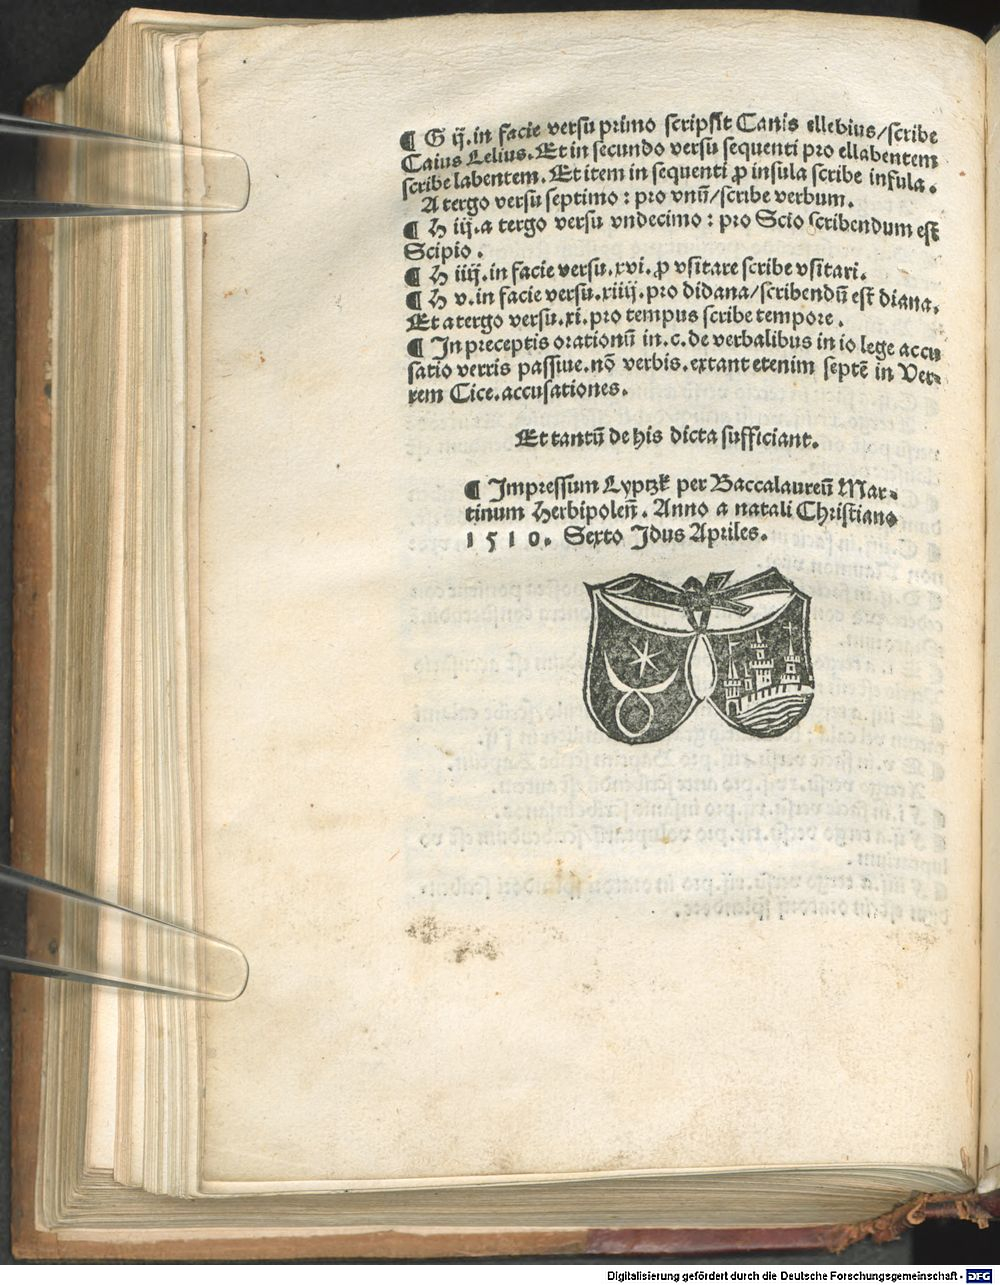 ¶ G ij. in facie versu primo scripsit Canis ellebius/scribe
Caius Lelius. Et in secundo versu sequenti pro ellabentem
scribe labentem. Et item in sequenti ꝓ insula scribe infula.
A tergo versu septimo : pro vnū/scribe verbum.
¶ H iij. a tergo versu vndecimo : pro Scio scribendum est
Scipio.
¶ H iiij. in facie versu. xvi. ꝓ vsitare scribe vsitari.
¶ H v. in facie versu. xiiij. pro didana/scribendū est diana.
Et a tergo versu. xi. pro tempus scribe tempore.
¶ In preceptis orationū in. c. de verbalibus in io lege accu
satio verris passiue. nō verbis. extant etenim septē in Ver-
rem Cice. accusationes.
Et tantū de his dicta sufficiant.
¶ Impressum Lyptzk per Baccalaureū Mar-
tinum Herbipoleñ. Anno a natali Christiano
1510. Sexto Idus Apriles.
Digitalisierung gefördert durch die Deutsche Forschungsgemeinschaft - DFG